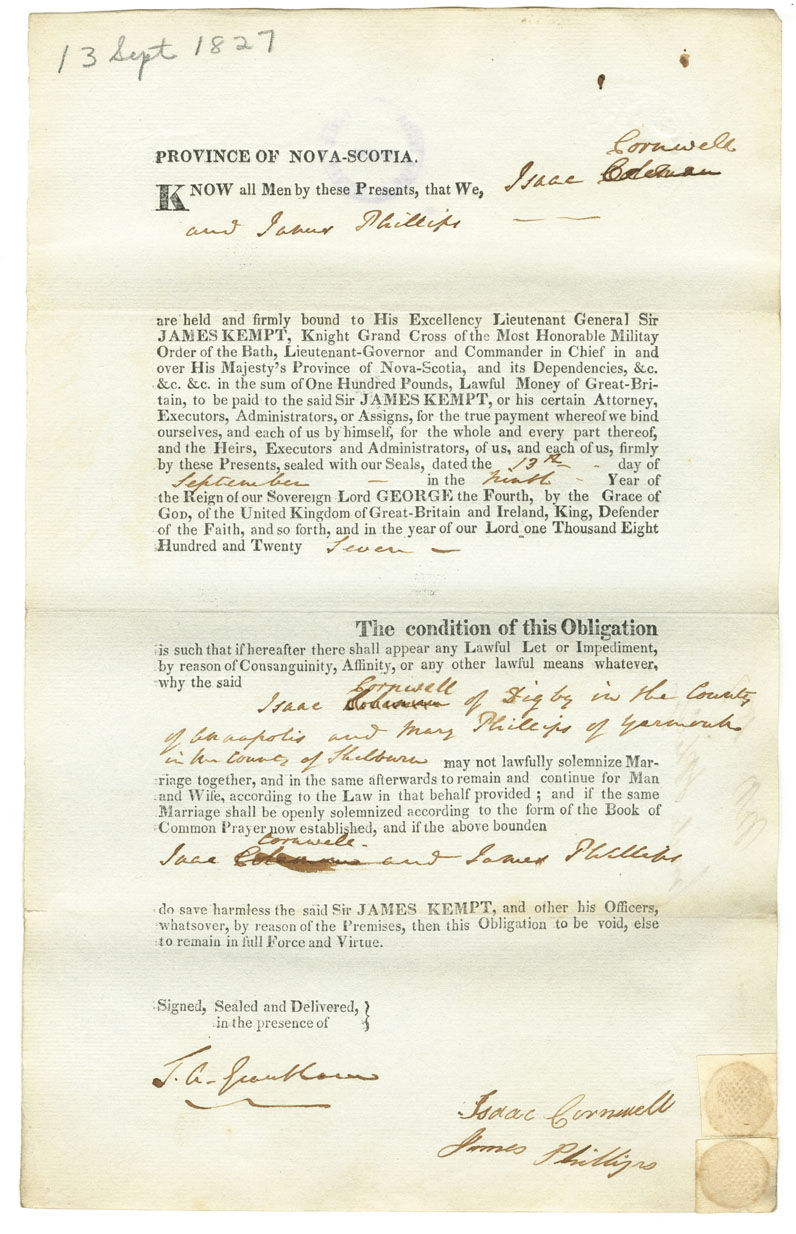 13 Sept 1827
PROVINCE OF NOVA-SCOTIA.
Cornwell
KNOW all Men by these Presents, that We, Isaac Coleman
and James Phillips
are held and firmly bound to His Excellency Lieutenant General Sir
JAMES KEMPT, Knight Grand Cross of the Most Honorable Militay
Order of the Bath, Lieutenant-Governor and Commander in Chief in and
over His Majesty's Province of Nova-Scotia, and its Dependencies, &c.
&c. &c. in the sum of One Hundred Pounds, Lawful Money of Great-Bri-
tain, to be paid to the said Sir JAMES KEMPT, or his certain Attorney,
Executors, Administrators, or Assigns, for the true payment whereof we bind
ourselves, and each of us by himself, for the whole and every part thereof,
and the Heirs, Executors and Administrators, of us, and each of us, firmly
by these Presents, sealed with our Seals, dated the 13th - day of
September - in the ninth - Year of
the Reign of our Sovereign Lord GEORGE the Fourth, by the Grace of
GOD, of the United Kingdom of Great-Britain and Ireland, King, Defender
of the Faith, and so forth, and in the year of our Lord one Thousand Eight
Hundred and Twenty Seven -
The condition of this Obligation
is such that if hereafter there shall appear any Lawful Let or Impediment,
by reason of Consanguinity, Affinity, or any other lawful means whatever,
why the said
Cornwell
Isaac Coleman of Digby in the County
of Annapolis and Mary Phillips of Yarmouth
in the County of Shelburn may not lawfully solemnize Mar-
riage together, and in the same afterwards to remain and continue for Man
and Wife, according to the Law in that behalf provided ; and if the same
Marriage shall be openly solemnized according to the form of the Book of
Common Prayer now established, and if the above bounden
Cornwell.
Isaac Coleman and James Phillips
do save harmless the said Sir JAMES KEMPT, and other his Officers,
whatsover, by reason of the Premises, then this Obligation to be void, else
to remain in full Force and Virtue.
Signed, Sealed and Delivered, }
in the presence of
Isaac Cornwell
James Phillips